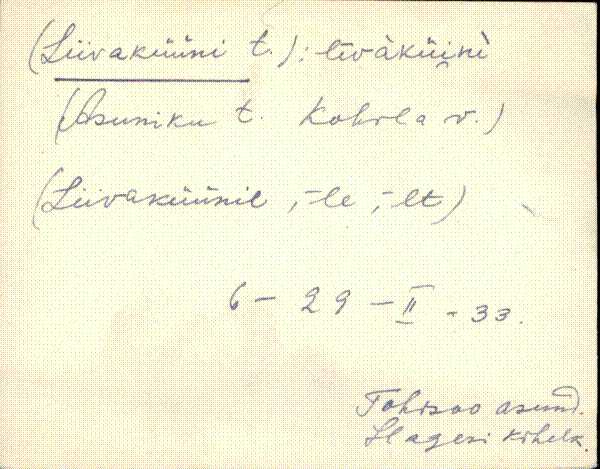 (Liivaküüni t.): līvàküinì
(Asuniku t. Kohila v.)
(Liivaküünil, -le, -lt)
6 - 29 - II - 33.
Tohisoo asund.
Hageri kihelk.